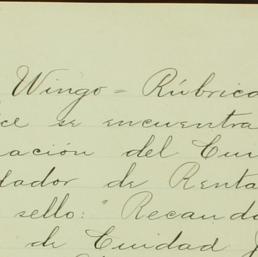 Wingo = Rúbrica
ce se encuentra
ación del Cui
lador de Renta
sello: " Recauda
de Cuidad J